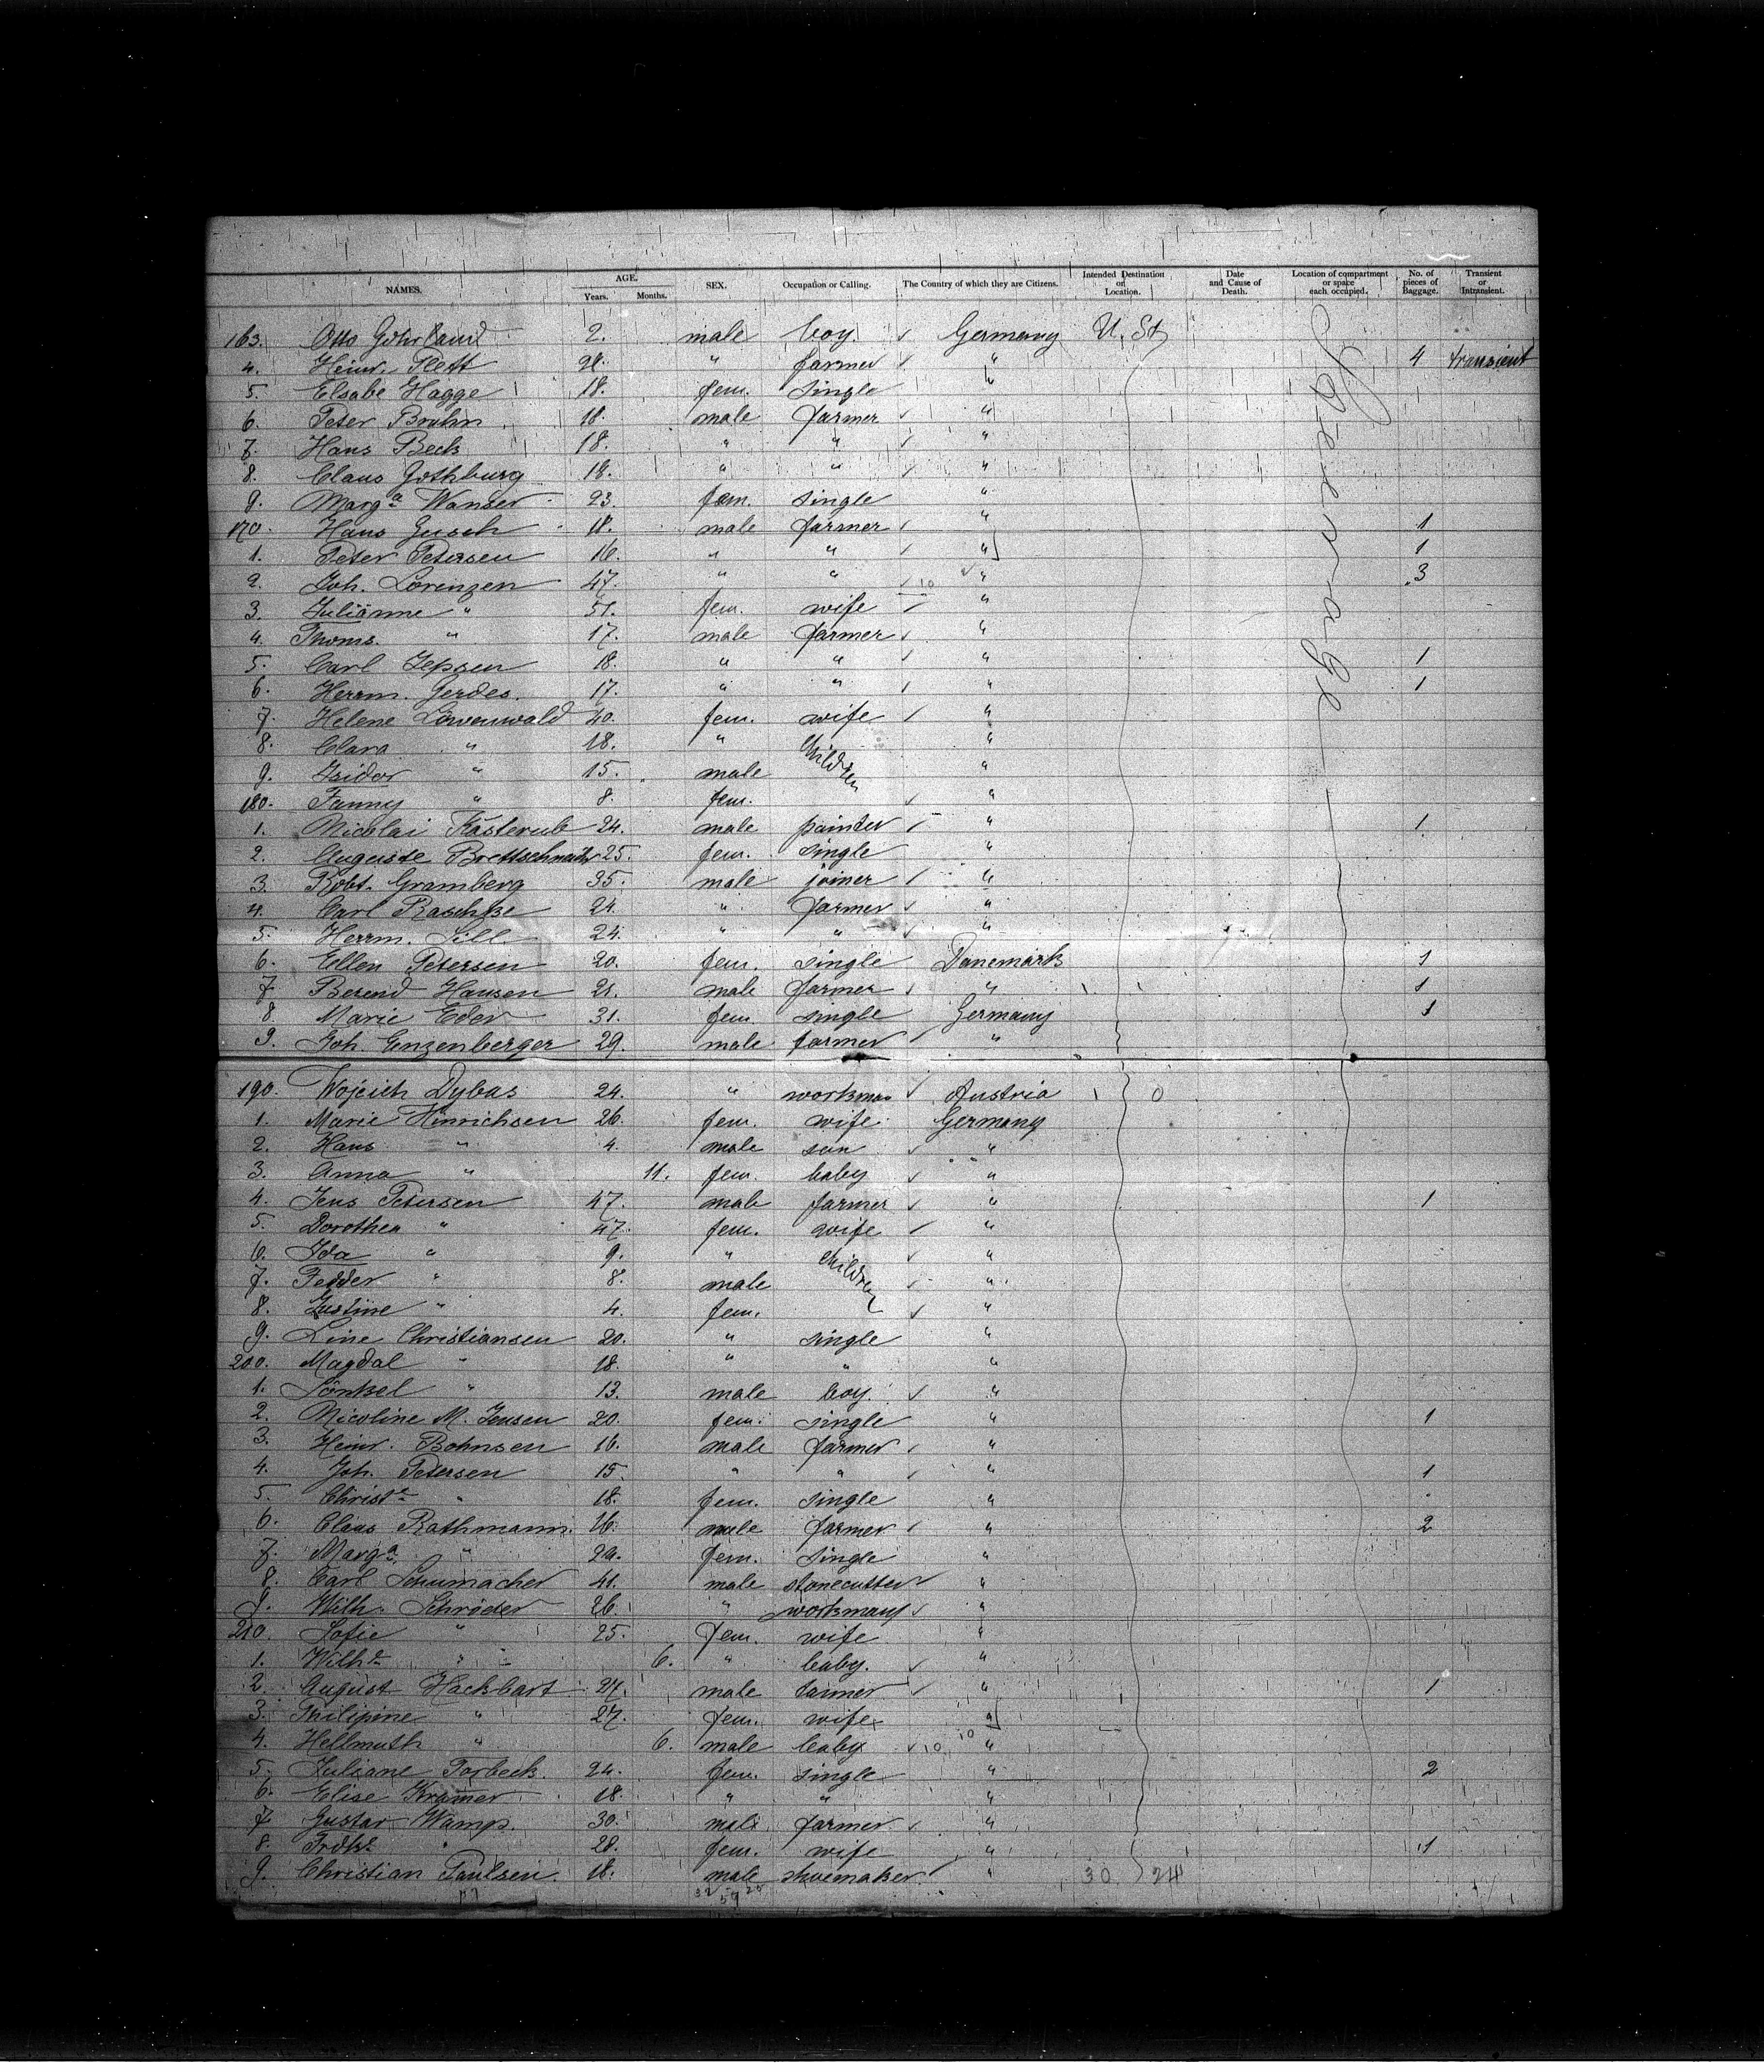 NAMES. AGE. Years. Months. SEX. Occupation or Calling. The Country of which they are Citizens. Intended Destination or Location. Date and Cause of Death. Location of compartment or space each occupied. No. of pieces of Baggage. Transient or Intransient.
Steerage
163. Otto 2. male boy Germany U. St
4. Heinr. Plett " farmer " 4 transient
5. Elsabe Hagge 18. fem. single "
6. Peter Bruhn 18. male farmer "
7. Hans Beck 18. " " "
8. Claus Gothburg 18. " " "
9. Marga Wanser 23. fem. single "
170. Hans Gusch 18. male farmer " 1
1. Peter Petersen 16. " " " 1
2. Joh. Lorenzen 47. " " 10 " 3
3. Julianne " 51. fem. wife "
4. Thoms. " 17. male farmer "
5. Carl Jepsen 18. " " " 1
6. Herrm. Gerdes. 17. " " " 1
7. Helene Löwenwald 40. fem. wife "
8. Clara " 18. " children "
9. Isidor " 15. male "
180. Fanny " 8. fem. "
1. Nicolai Kasterub 24. male painter " 1
2. Auguste Brettschneider 25. fem. single "
3. Robt. Gramberg 35. male joiner "
4. Carl Raschke 24. " farmer "
5. Herrm. Sill 24. " " "
6. Ellen Petersen 20. fem. single Danemark 1
7. Berend Hansen 21. male farmer " 1
8 Marie Eder 31. fem. single Germany 1
9. Joh. Enzenberger 29. male farmer "
190. Wojcich Dybas 24. " workman Austria 0
1. Marie Hinrichsen 26. fem. wife Germany
2. Hans " 4. male son "
3. Anna " 11. fem. baby "
4. Jens Petersen 47. male farmer " 1
5. Dorothea " 47. fem. wife "
6. Ida " 9. " children "
7. Fedder " 8. male "
8. Justine " 4. fem. "
9. Line Christiansen 20. " single "
200. Magdal " 18. " " "
1. Sönkel " 13. male boy. "
2. Nicoline M. Jensen 20. fem. single " 1
3. Heinr. Bohnsen 16. male farmer "
4. Joh. Petersen 15. " " " 1
5. Christe " 18. fem. single "
6. Claus Rathmann. 26. male farmer " 2
7. Marga " fem. single "
8. Carl Schumacher 41. male stonecutter "
9. Wilh. Schröder 26. " workman "
210. Sofie " 25. fem. wife "
1. Wilhe " 6. " baby. "
2. August Hackbart 27. male farmer " 1
3. Philipine " 27. fem. wife "
4. Hellmuth " 6. male baby 10 10 "
5. Juliane Torbeck. 24. fem. single " 2
6. Elise Kramer 18. " " "
7. Gustav Wamp. 30. male farmer "
8. Frdke " 28. fem. wife " 1
9. Christian Paulsen. 18. male shoemaker. " 30 24
32 59 25